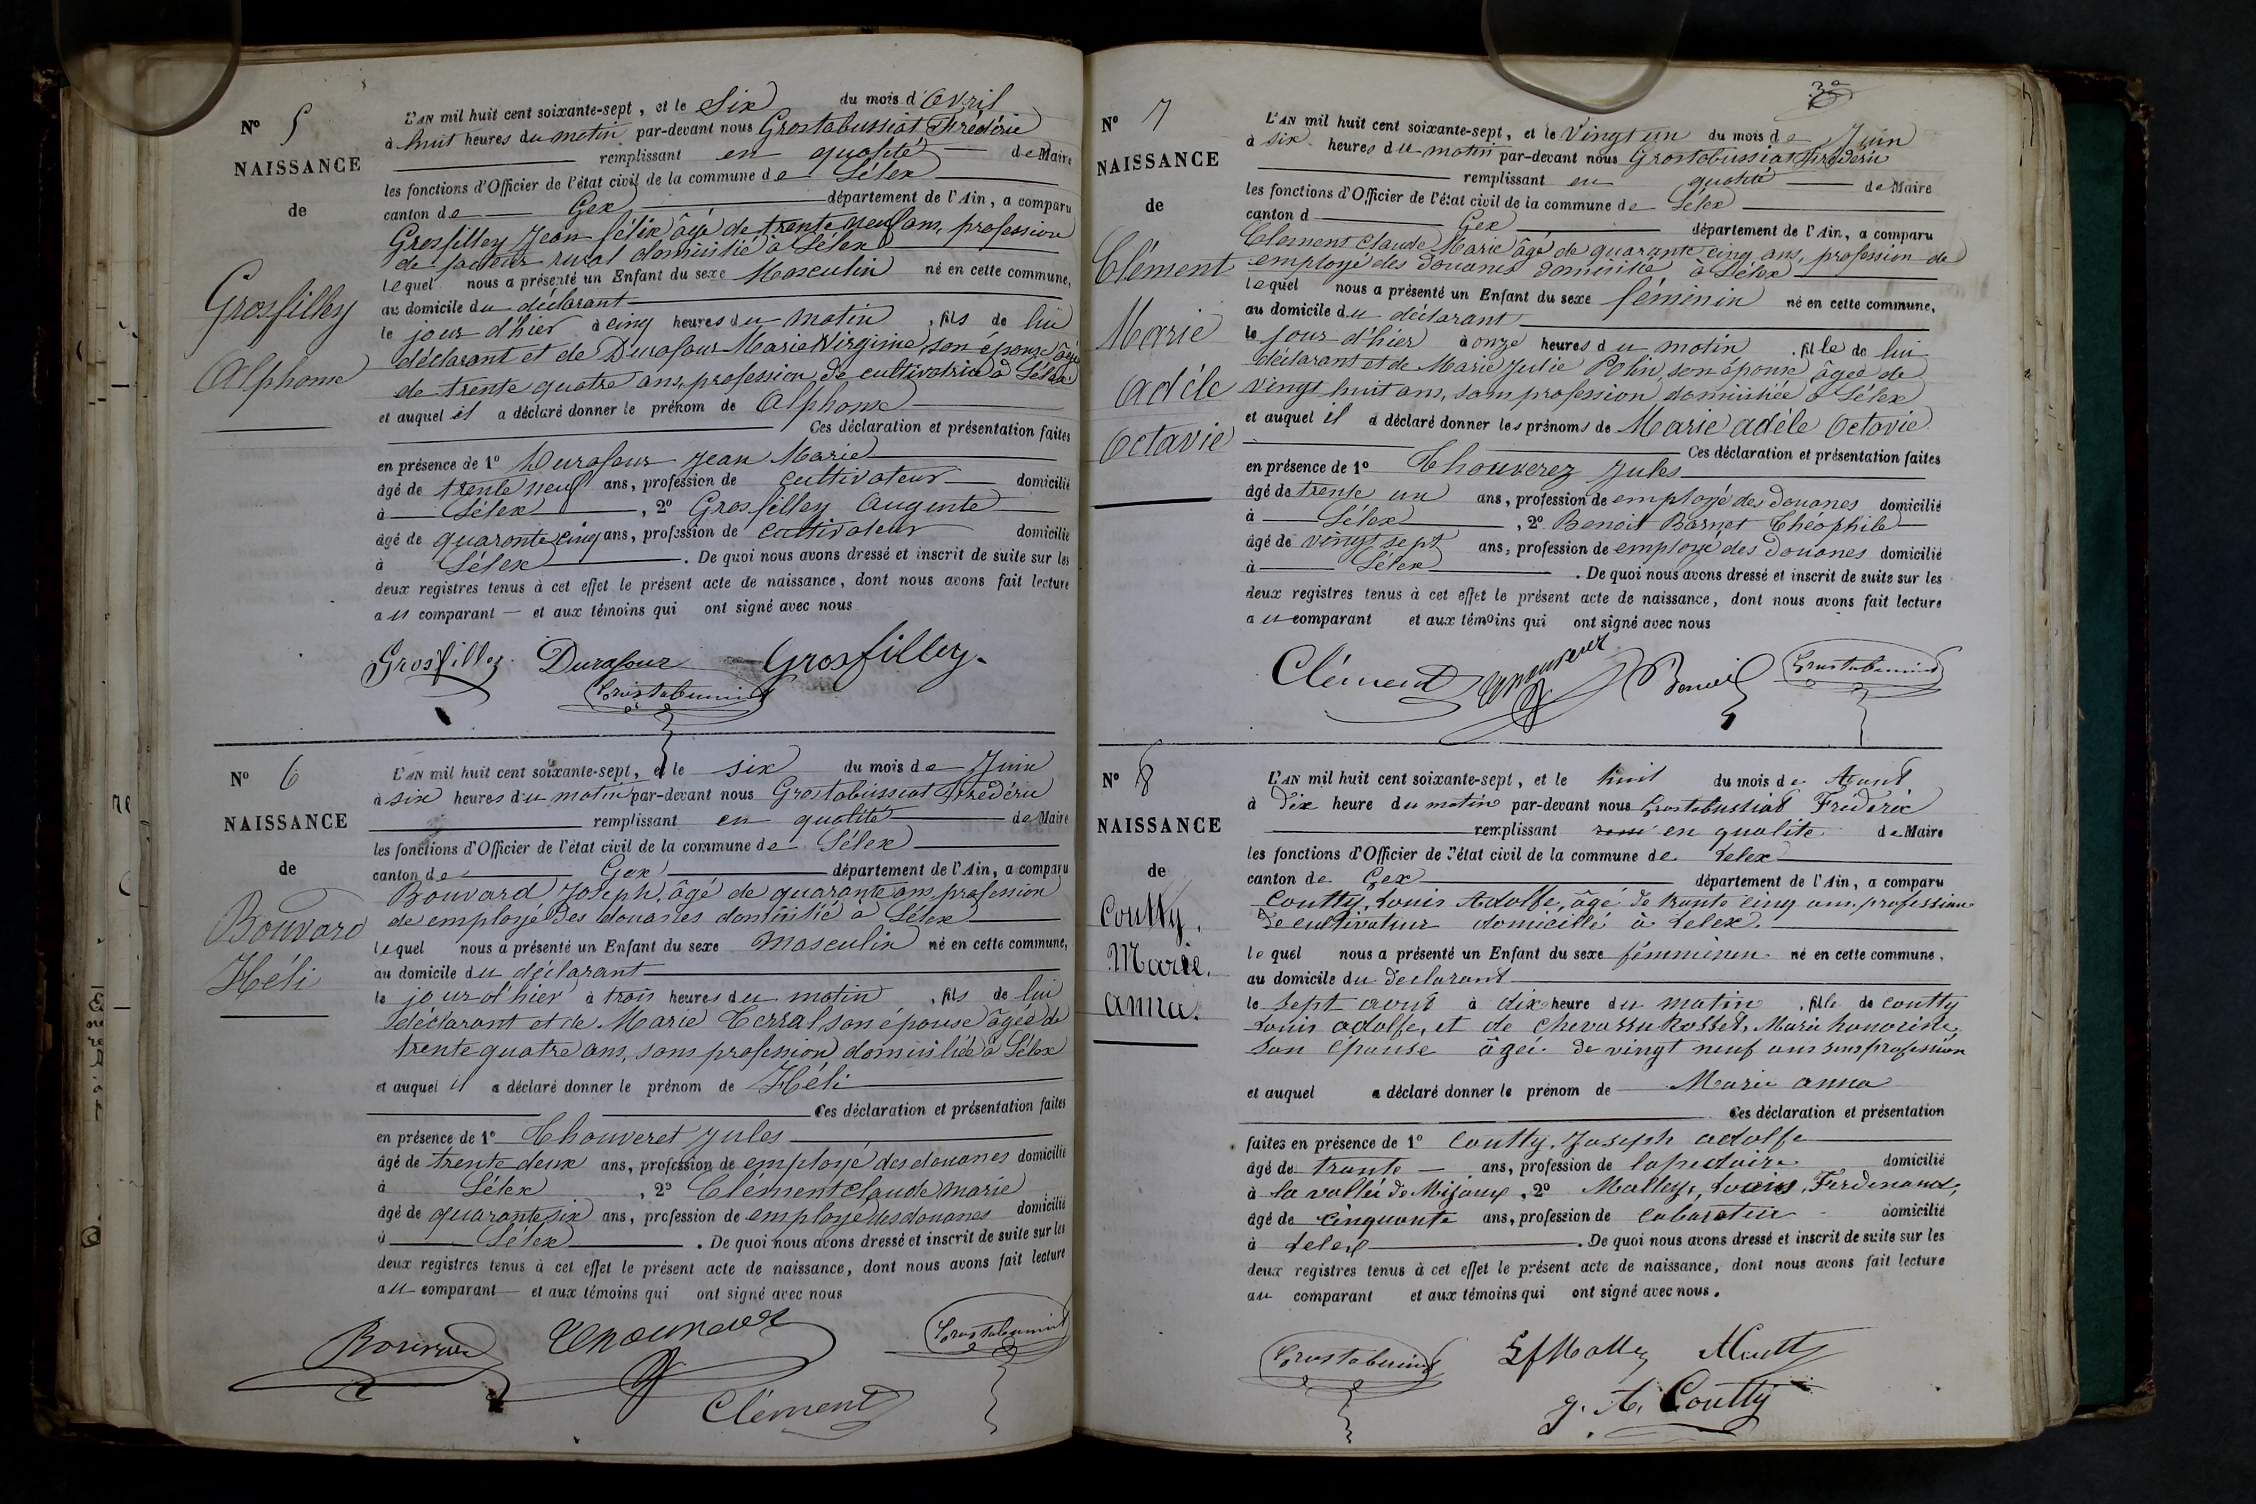 Nº 5
NAISSANCE
de
Grosfilley
Alphonse
L'AN mil huit cent soixante-sept, et le Six du mois d'Avril
à huit heures du matin par-devant nous Grostabussiat Frédéric
remplissant en qualité de Maire
les fonctions d'Officier de l'état civil de la commune de Lélex
canton de Gex département de l'Ain, a comparu
Grosfilley Jean félix âgé de trente neuf ans, profession
de facteur rural domicilié à Lélex
lequel nous a présenté un Enfant du sexe Masculin né en cette commune,
au domicile du déclarant
le jour d'hier à cinq heures du matin, fils de lui
déclarant et de Durafour Marie Virginie, son épouse âgée
de trente quatre ans, profession de cultivatrice à Lélex
et auquel il a déclaré donner le prénom de Alphonse
Ces déclaration et présentation faites
en présence de 1º Durafour Jean Marie
âgé de trente neuf ans, profession de cultivateur domicilié
à Lélex, 2º Grosfilley Auguste
âgé de quarante cinq ans, profession de cultivateur domicilié
à Lélex. De quoi nous avons dressé et inscrit de suite sur les
deux registres tenus à cet effet le présent acte de naissance, dont nous avons fait lecture
au comparant et aux témoins qui ont signé avec nous
Grosfilley Durafour Grosfilley
Grostabussiat
Nº 6
NAISSANCE
de
Bouvard
Héli
L'AN mil huit cent soixante-sept, et le six du mois de Juin
à six heures du matin par-devant nous Grostabussiat Frédéric
remplissant en qualité de Maire
les fonctions d'Officier de l'état civil de la commune de Lélex
canton de Gex département de l'Ain, a comparu
Bouvard Joseph, âgé de quarante ans, profession
de employé des douanes domicilié à Lélex
lequel nous a présenté un Enfant du sexe masculin né en cette commune,
au domicile du déclarant
le jour d'hier à trois heures du matin, fils de lui
déclarant et de Marie Terral son épouse âgée de
trente quatre ans, sans profession domiciliée à Lélex
et auquel il a déclaré donner le prénom de Héli
Ces déclaration et présentation faites
en présence de 1º Thouveret Jules
âgé de trente deux ans, profession de employé des douanes domicilié
à Lélex, 2º Clément Claude Marie
âgé de quarante six ans, profession de employé des douanes domicilié
à Lélex. De quoi nous avons dressé et inscrit de suite sur les
deux registres tenus à cet effet le présent acte de naissance, dont nous avons fait lecture
au comparant et aux témoins qui ont signé avec nous
Bouvard Thouveret Grostabussiat
Clément
Nº 7
NAISSANCE
de
Clément
Marie
adèle
octavie
L'AN mil huit cent soixante-sept, et le Vingt un du mois de Juin
à six heures du matin par-devant nous Grostabussiat Frédéric
remplissant en qualité de Maire
les fonctions d'Officier de l'état civil de la commune de Lélex
canton d Gex département de l'Ain, a comparu
Clement Claude Marie âgé de quarante cinq ans, profession de
employé des douanes domicilié à Lélex
lequel nous a présenté un Enfant du sexe féminin né en cette commune,
au domicile du déclarant
le jour d'hier à onze heures du matin, fille de lui
déclarant et de Marie Julie Polin, son épouse âgée de
vingt huit ans, sans profession domiciliée à Lélex
et auquel il a déclaré donner les prénoms de Marie adèle octavie
Ces déclaration et présentation faites
en présence de 1º Thouverez Jules
âgé de trente un ans, profession de employé des douanes domicilié
à Lélex, 2º Benoit Barnet Théophile
âgé de vingt sept ans, profession de employé des douanes domicilié
à Lélex. De quoi nous avons dressé et inscrit de suite sur les
deux registres tenus à cet effet le présent acte de naissance, dont nous avons fait lecture
au comparant et aux témoins qui ont signé avec nous
Clément Thouverez Benoit Grostabussiat
Nº 8
NAISSANCE
de
Coutty,
Marie,
anna.
L'AN mil huit cent soixante-sept, et le huit du mois de Aout
à dix heure du matin par-devant nous Grostabussiat Frédéric
remplissant en qualite de Maire
les fonctions d'Officier de l'état civil de la commune de Lelex
canton de Gex département de l'Ain, a comparu
Coutty, Louis Adolfe, âgé de trante cinq ans. profession
de cultivateur domicillé à Lelex.
lequel nous a présenté un Enfant du sexe fémminin né en cette commune,
au domicile du declarant
le Sept aout à dix heure du matin, fille de coutty
Louis adolfe, et de Chevassu Rosset, Marie honorine,
son épouse âgée de vingt neuf ans sans profession
et auquel a déclaré donner le prénom de Marie anna
Ces déclaration et présentation
faites en présence de 1º Coutty, Joseph adolfe
âgé de trante ans, profession de lapidaire domicilié
à la vallée de Mijoux, 2º Molley, Louis, Ferdinand,
âgé de cinquante ans, profession de cabaretier domicilié
à Lelex. De quoi nous avons dressé et inscrit de suite sur les
deux registres tenus à cet effet le présent acte de naissance, dont nous avons fait lecture
au comparant et aux témoins qui ont signé avec nous.
Grostabussiat L f Molley A Coutty
J. A. Coutty